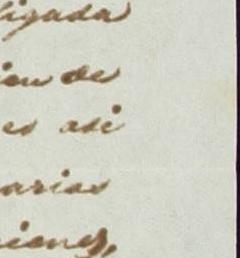 ligada
ion de
es asi
arios
iones,